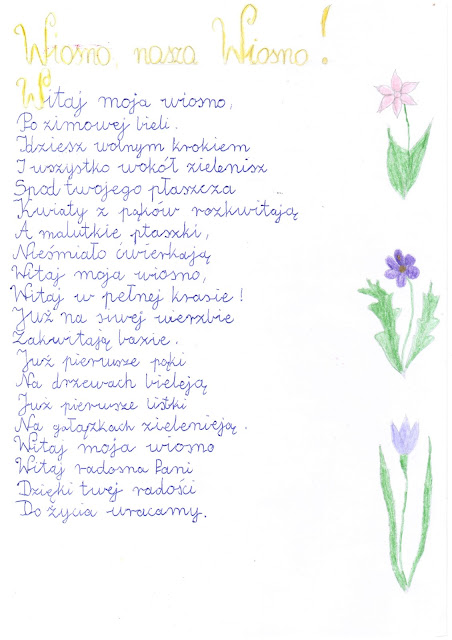 Wiosno, nasza Wiosno!
Witaj moja wiosno,
Po zimowej bieli.
Idziesz wolnym krokiem
I wszystko wokół zielenisz
Spod twojego płaszcza
Kwiaty z pąków rozkwitają
A malutkie ptaszki,
Nieśmiało ćwierkają
Witaj moja wiosno,
Witaj w pełnej krasie!
Już na siwej wierzbie
Zakwitają bazie.
Już pierwsze pąki
Na drzewach bieleją
Już pierwsze listki
Na gałązkach zielenieją.
Witaj moja wiosno
Witaj radosna Pani
Dzięki twej radości
Do życia wracamy.